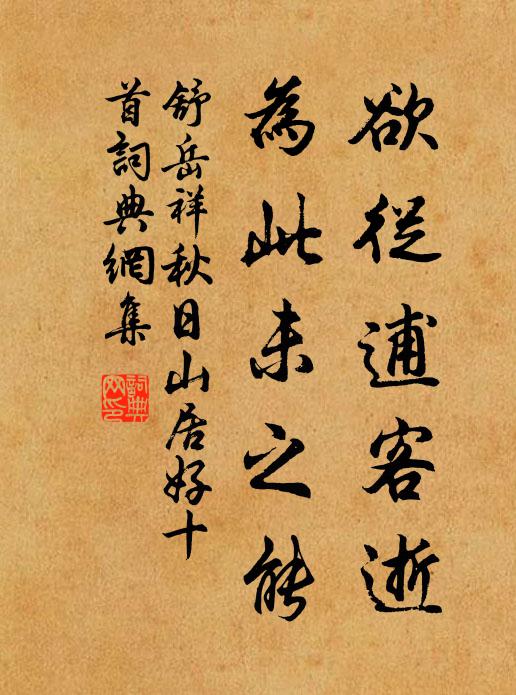 欲従逋客逝
為此未之能
舒岳祥秋日山居好十
首詞典網集
詞典網印